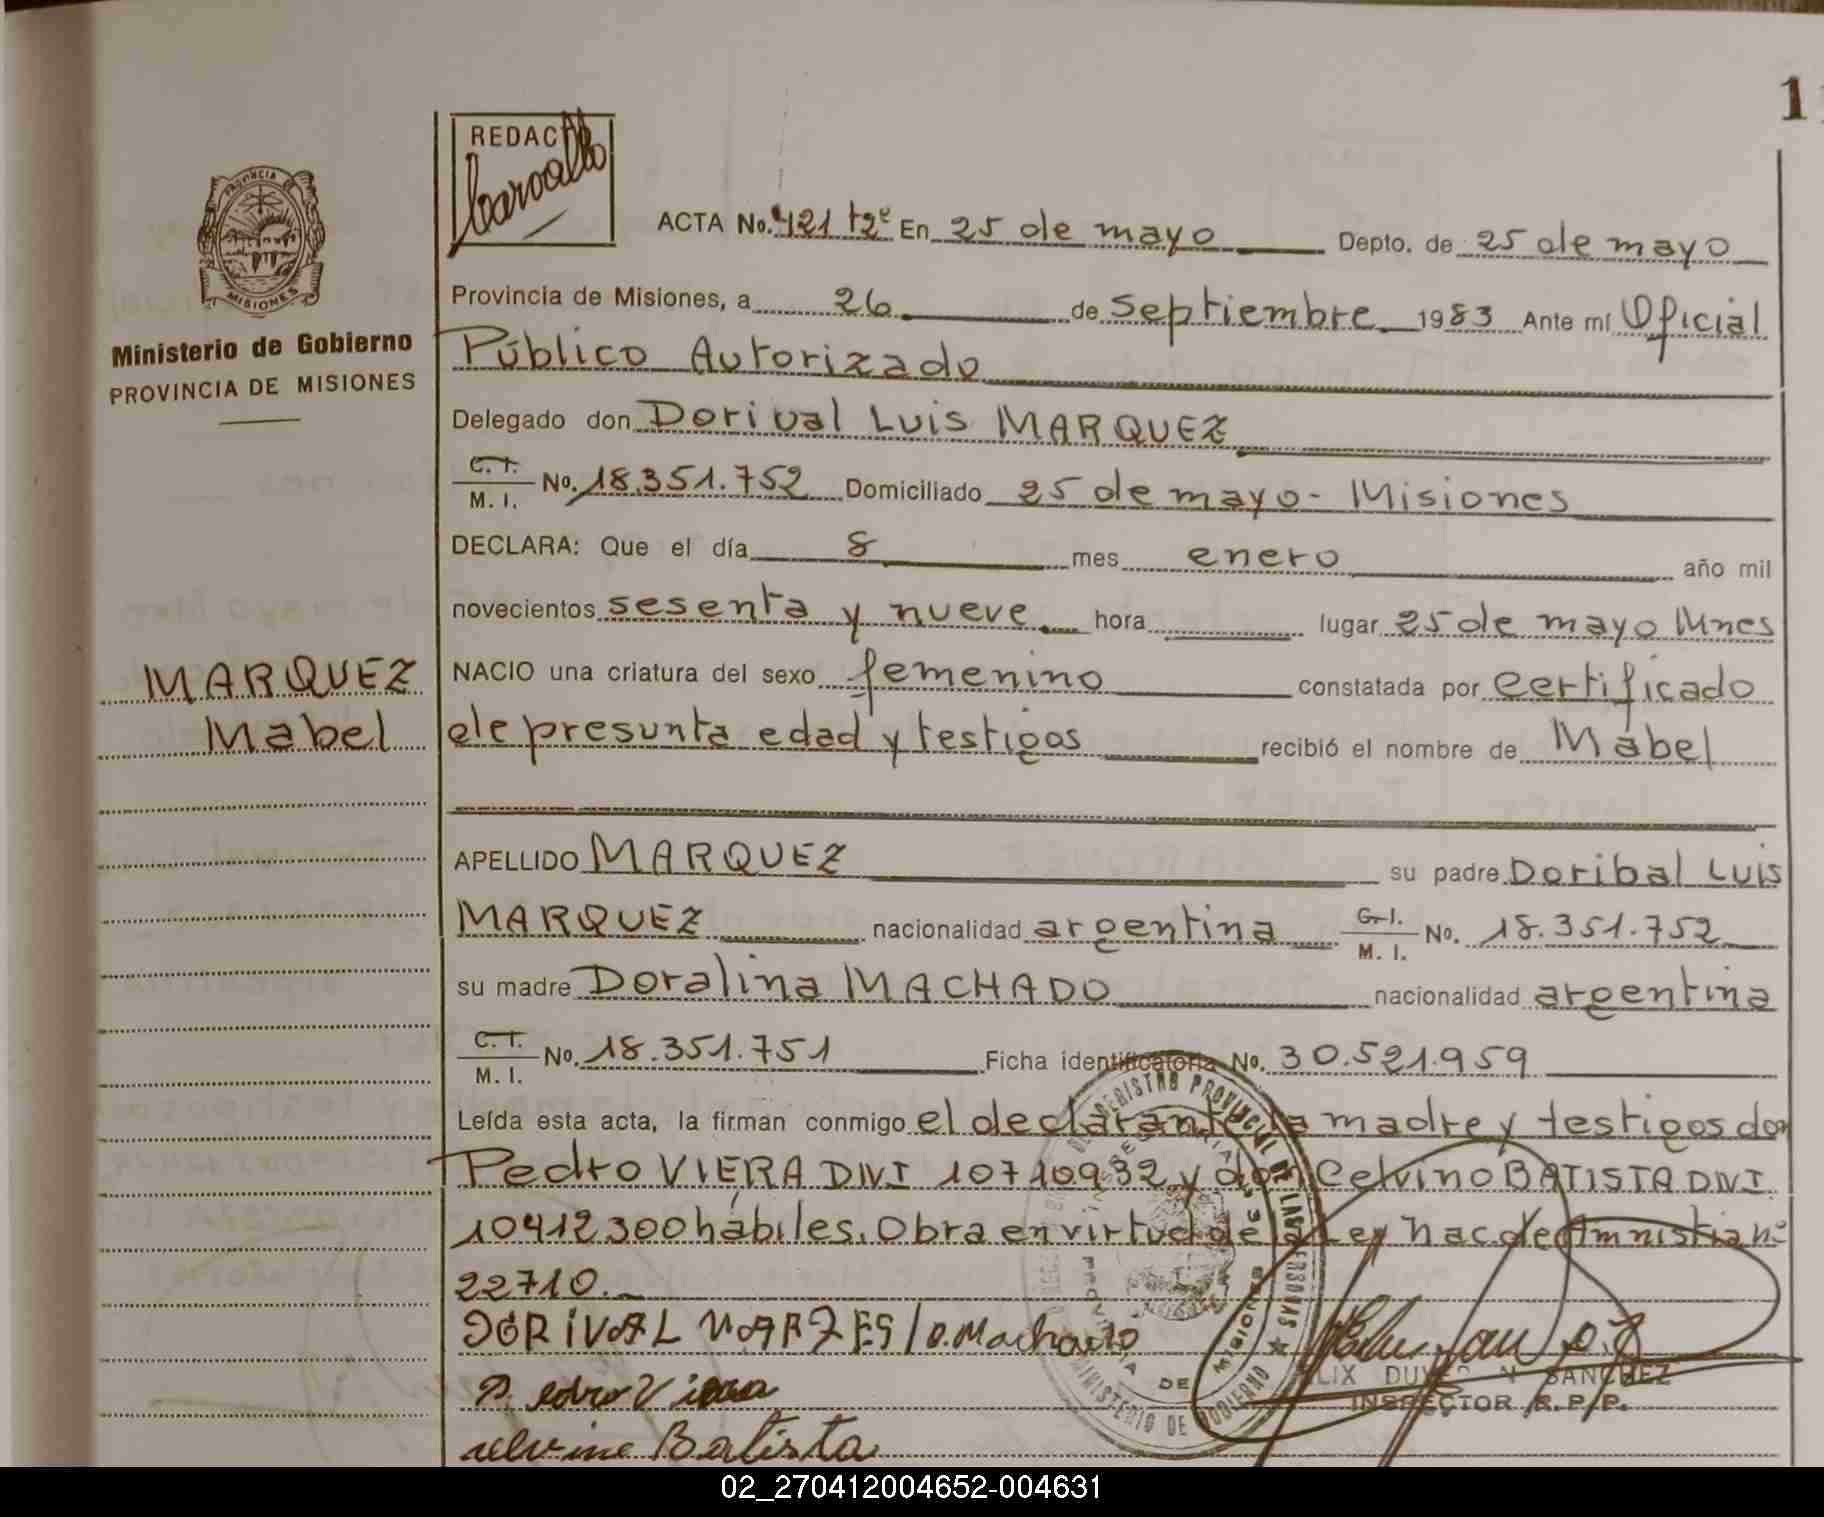 1
REDAC
Carvallo
PROVINCIA DE
MISIONES
Ministerio de Gobierno
PROVINCIA DE MISIONES
ACTA No. 421 tºe En 25 de mayo Depto. de 25 de mayo
Provincia de Misiones, a 26 de Septiembre 1983 Ante mí Oficial
Público Autorizado
Delegado don Dorival Luis MARQUEZ
C. I. M. I. No. 18.351.752 Domiciliado 25 de mayo - Misiones
DECLARA: Que el día 8 mes enero año mil
novecientos sesenta y nueve hora lugar 25 de mayo Mnes
MARQUEZ
Mabel
NACIO una criatura del sexo femenino constatada por certificado
de presunta edad y testigos recibió el nombre de Mabel
APELLIDO MARQUEZ su padre Doribal Luis
MARQUEZ nacionalidad argentina C. I. M. I. No. 18.351.752
su madre Doralina MACHADO nacionalidad argentina
C. I. M. I. No. 18.351.751 Ficha identificatoria No. 30.521.959
Leída esta acta, la firman conmigo el declarante la madre y testigos don
Pedro VIERA DNI 10710932 y don Celvino BATISTA DNI
10412300 hábiles. Obra en virtud de la Ley nac de Amnistia nº
22710.
DORIVAL MARQES / D. Machado
Pedro Viera
selvino Batista
REGISTRO PROVINCIAL DE LAS PERSONAS
MINISTERIO DE GOBIERNO
PROVINCIA DE MISIONES
SANCHEZ
INSPECTOR R.P.P.
02_270412004652-004631